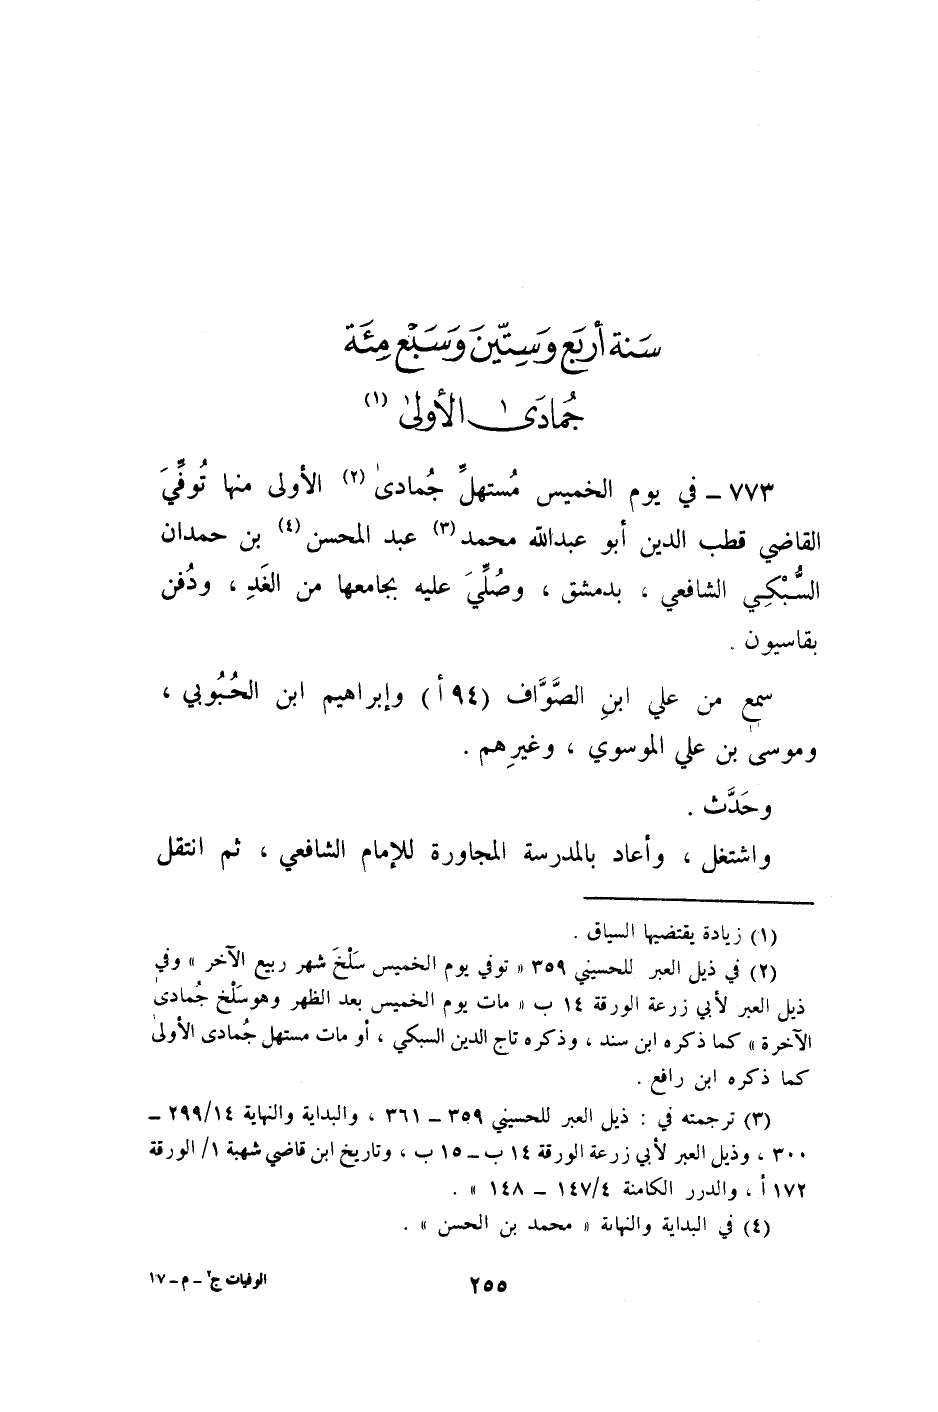 سَنة أربَع وَسِتّينَ وَسَبْع مِئَة
جُمادَىٰ الأولىٰ (١)
٧٧٣ – في يوم الخميس مُستهلِّ جُمادىٰ (٢) الأولى منها تُوفِّيَ
القاضي قطب الدين أبو عبدالله محمد (٣) عبد المحسن (٤) بن حمدان
السُّبْكِي الشافعي ، بدمشق ، وصُلِّيَ عليه بجامعها من الغَدِ ، ودُفن
بقاسيون .
سمع من علي ابنِ الصَّوَّاف (٩٤ أ) وإبراهيم ابن الحُبُوبي ،
وموسىٰ بن علي الموسوي ، وغيرِهم .
وحَدَّث .
واشتغل ، وأعاد بالمدرسة المجاورة للإمام الشافعي ، ثم انتقل
(١) زيادة يقتضيها السياق .
(٢) في ذيل العبر للحسيني ٣٥٩ « توفي يوم الخميس سَلْخَ شهر ربيع الآخر » وفي
ذيل العبر لأبي زرعة الورقة ١٤ ب « مات يوم الخميس بعد الظهر وهو سَلْخ جُمادىٰ
الآخرة » كما ذكره ابن سند ، وذكره تاج الدين السبكي ، أو مات مستهل جُمادى الأولىٰ
كما ذكره ابن رافع .
(٣) ترجمته في : ذيل العبر للحسيني ٣٥٩ – ٣٦١ ، والبداية والنهاية ٢٩٩/١٤ –
٣٠٠ ، وذيل العبر لأبي زرعة الورقة ١٤ ب – ١٥ ب ، وتاريخ ابن قاضي شهبة ١/ الورقة
١٧٢ أ ، والدرر الكامنة ١٤٧/٤ – ١٤٨ » .
(٤) في البداية والنهاية « محمد بن الحسن » .
٢٥٥
الوفيات ج٢ – م – ١٧